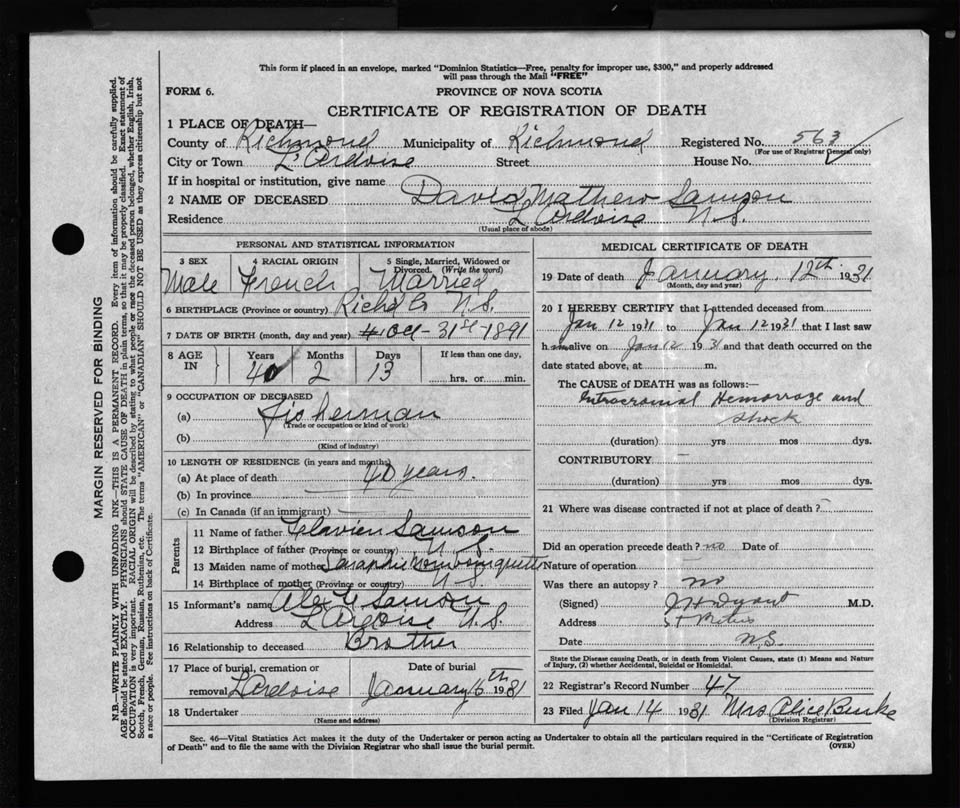 This form if placed in an envelope, marked "Dominion Statistics—Free, penalty for improper use, $300," and properly addressed
will pass through the Mail "FREE"
FORM 6. PROVINCE OF NOVA SCOTIA
CERTIFICATE OF REGISTRATION OF DEATH
1 PLACE OF DEATH—
County of Richmond Municipality of Richmond Registered No. 563
(For use of Registrar General only)
City or Town L'Ardoise Street House No.
If in hospital or institution, give name
2 NAME OF DECEASED David Mathew Samson
Residence L'Ardoise N.S.
(Usual place of abode)
PERSONAL AND STATISTICAL INFORMATION
3 SEX 4 RACIAL ORIGIN 5 Single, Married, Widowed or Divorced. (Write the word)
Male French Married
6 BIRTHPLACE (Province or country) Richd Co N.S.
7 DATE OF BIRTH (month, day and year) Oct - 31st - 1891
8 AGE IN Years Months Days If less than one day,
40 2 13 hrs. or min.
9 OCCUPATION OF DECEASED
(a) Fisherman
(Trade or occupation or kind of work)
(b)
(Kind of industry)
10 LENGTH OF RESIDENCE (in years and months)
(a) At place of death 40 years.
(b) In province
(c) In Canada (if an immigrant)
Parents
11 Name of father Flavien Samson
12 Birthplace of father (Province or country) N.S.
13 Maiden name of mother
14 Birthplace of mother (Province or country) N.S.
15 Informant's name Alex Samson
Address L'Ardoise N.S.
16 Relationship to deceased Brother
17 Place of burial, cremation or Date of burial
removal L'Ardoise January 16th 1931
18 Undertaker
(Name and address)
MEDICAL CERTIFICATE OF DEATH
19 Date of death January 12th 1931
(Month, day and year)
20 I HEREBY CERTIFY that I attended deceased from
Jan 12 1931 to Jan 12 1931 that I last saw
him alive on Jan 12 1931 and that death occurred on the
date stated above, at m.
The CAUSE of DEATH was as follows:—
Intracranial Hemorrage and
shock
(duration) yrs mos dys.
CONTRIBUTORY
(duration) yrs mos dys.
21 Where was disease contracted if not at place of death?
Did an operation precede death? no Date of
Nature of operation
Was there an autopsy? no
(Signed) M.D.
Address St Peters
Date N.S.
State the Disease causing Death, or in death from Violent Causes, state (1) Means and Nature
of Injury, (2) whether Accidental, Suicidal or Homicidal.
22 Registrar's Record Number 47
23 Filed Jan 14 1931 Mrs Alice Burke
(Division Registrar)
Sec. 46—Vital Statistics Act makes it the duty of the Undertaker or person acting as Undertaker to obtain all the particulars required in the "Certificate of Registration
of Death" and to file the same with the Division Registrar who shall issue the burial permit. (OVER)
MARGIN RESERVED FOR BINDING
N.B.—WRITE PLAINLY WITH UNFADING INK—THIS IS A PERMANENT RECORD. Every item of information should be carefully supplied.
AGE should be stated EXACTLY. PHYSICIANS should STATE CAUSE OF DEATH in plain terms, so that it may be properly classified. Exact statement of
OCCUPATION is very important. RACIAL ORIGIN will be described by stating to what people or race the deceased person belonged, whether English, Irish,
Scotch, French, German, Russian, Ruthenian, etc. The terms "AMERICAN" or "CANADIAN" SHOULD NOT BE USED as they express citizenship but not
a race or people. See instructions on back of Certificate.